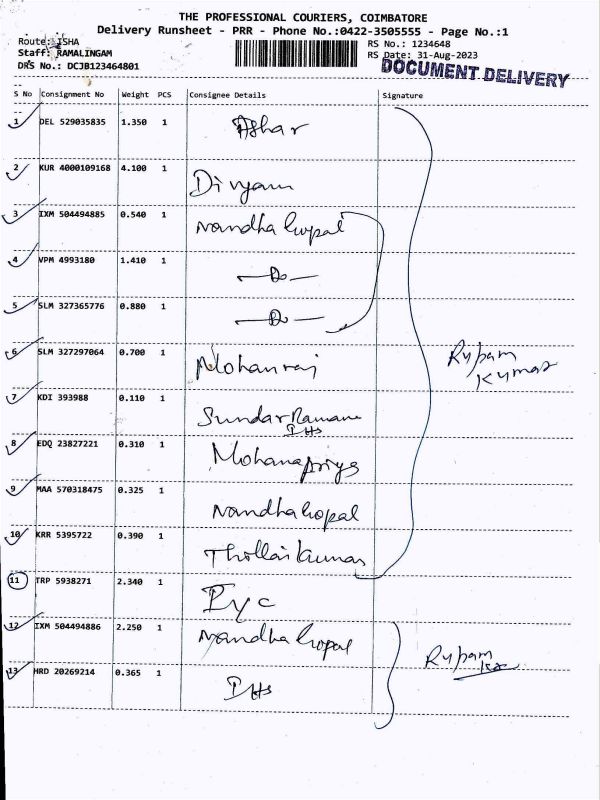 THE PROFESSIONAL COURIERS, COIMBATORE
Delivery Runsheet - PRR - Phone No.:0422-3505555 - Page No.:1
Route: ISHA
RS No.: 1234648
Staff: RAMALINGAM
RS Date: 31-Aug-2023
DRS No.: DCJB123464801
DOCUMENT DELIVERY
S No Consignment No Weight PCS Consignee Details Signature
1 DEL 529035835 1.350 1 Athar
2 KUR 4000109168 4.100 1 Divyam
3 IXM 504494885 0.540 1 Nandha Gopal
4 VPM 4993180 1.410 1 —Do—
5 SLM 327365776 0.880 1 —Do—
6 SLM 327297064 0.700 1 Mohanraj
Rupam Kumar
7 KDI 393988 0.110 1 Sundar Ramane
IHS
8 EDQ 23827221 0.310 1 Mohanapriya
9 MAA 570318475 0.325 1 Nandha Gopal
10 KRR 5395722 0.390 1 Thollaikumar
11 TRP 5938271 2.340 1 IYC
12 IXM 504494886 2.250 1 Nandha Gopal
Rupam Kr
13 HRD 20269214 0.365 1 IHS